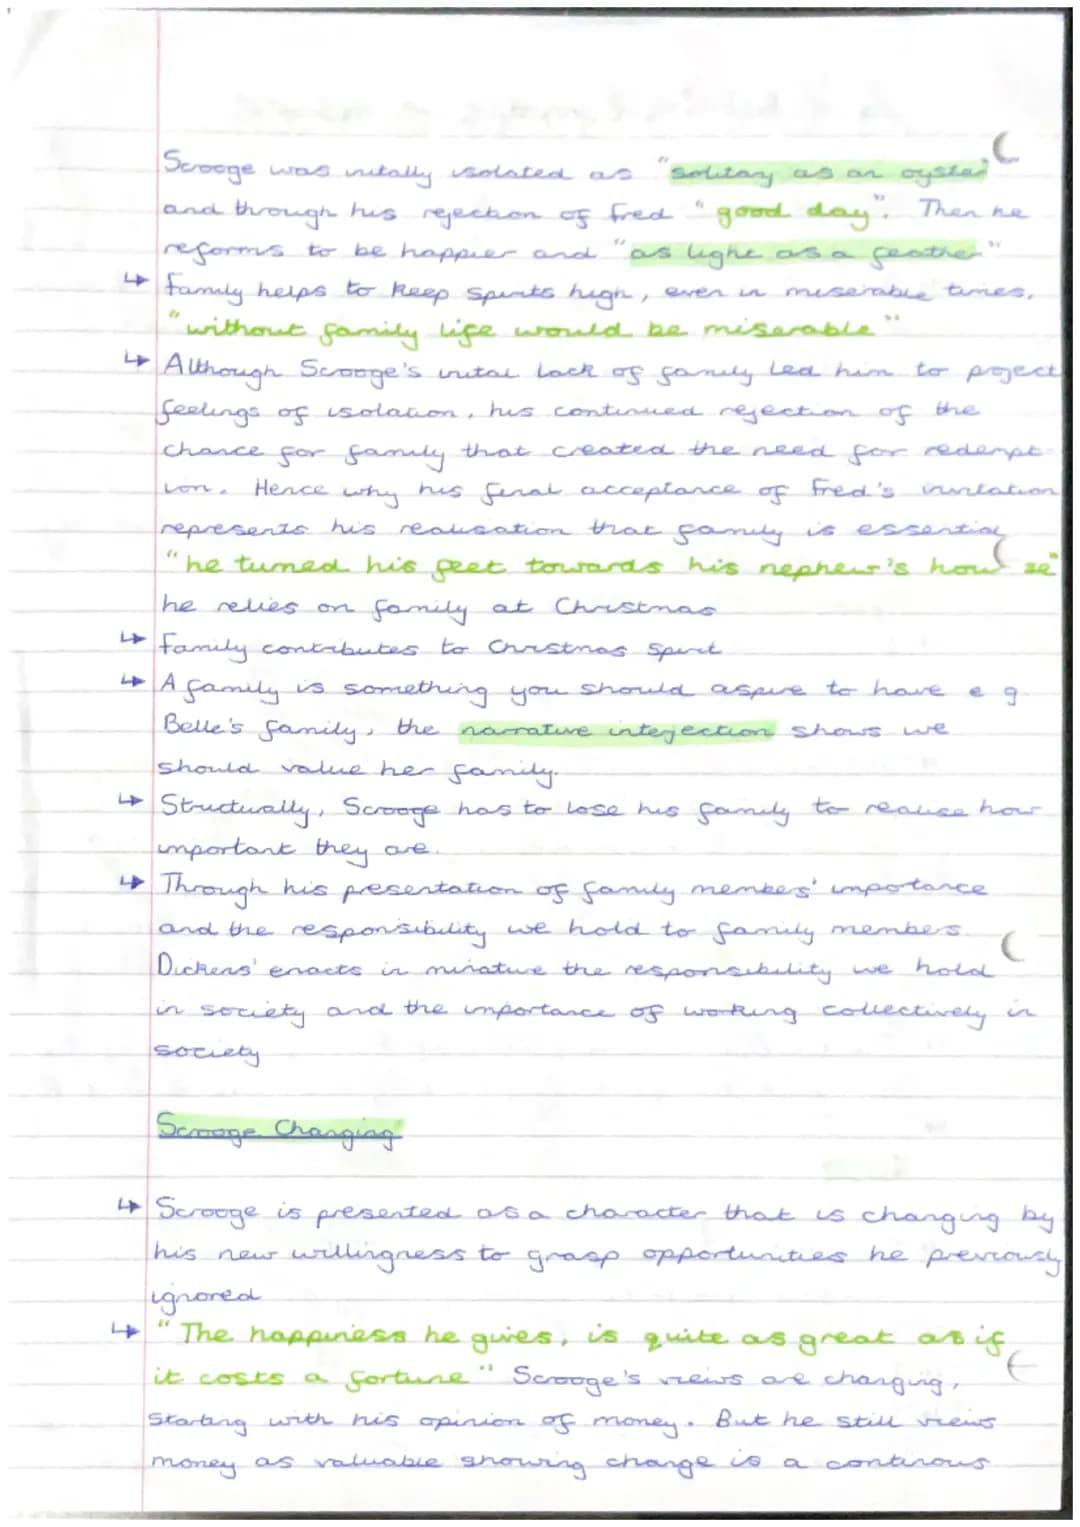 Scrooge was initally isolated as "solitary as an oyster"
and through his rejection of Fred "good day". Then he
reforms to be happier and "as light as a feather"
↳ Family helps to keep spirits high, even in miserable times,
"without family life would be miserable"
↳ Although Scrooge's inital lack of family led him to project
feelings of isolation, his continued rejection of the
chance for family that created the need for redempt-
ion. Hence why his final acceptance of Fred's invitation
represents his realisation that family is essential
"he turned his feet towards his nephew's house"
he relies on family at Christmas
↳ Family contributes to Christmas spirit
↳ A family is something you should aspire to have e g
Belle's family, the narrative intejection shows we
should value her family.
↳ Structurally, Scrooge has to lose his family to realise how
important they are.
↳ Through his presentation of family members' importance
and the responsibility we hold to family members
Dickens' enacts in minature the responsibility we hold
in society and the importance of working collectively in
society
Scrooge Changing
↳ Scrooge is presented as a character that is changing by
his new willingness to grasp opportunities he previously
ignored
↳ "The happiness he gives, is quite as great as if
it costs a fortune" Scrooge's views are changing,
starting with his opinion of money. But he still views
money as valuable showing change is a continous